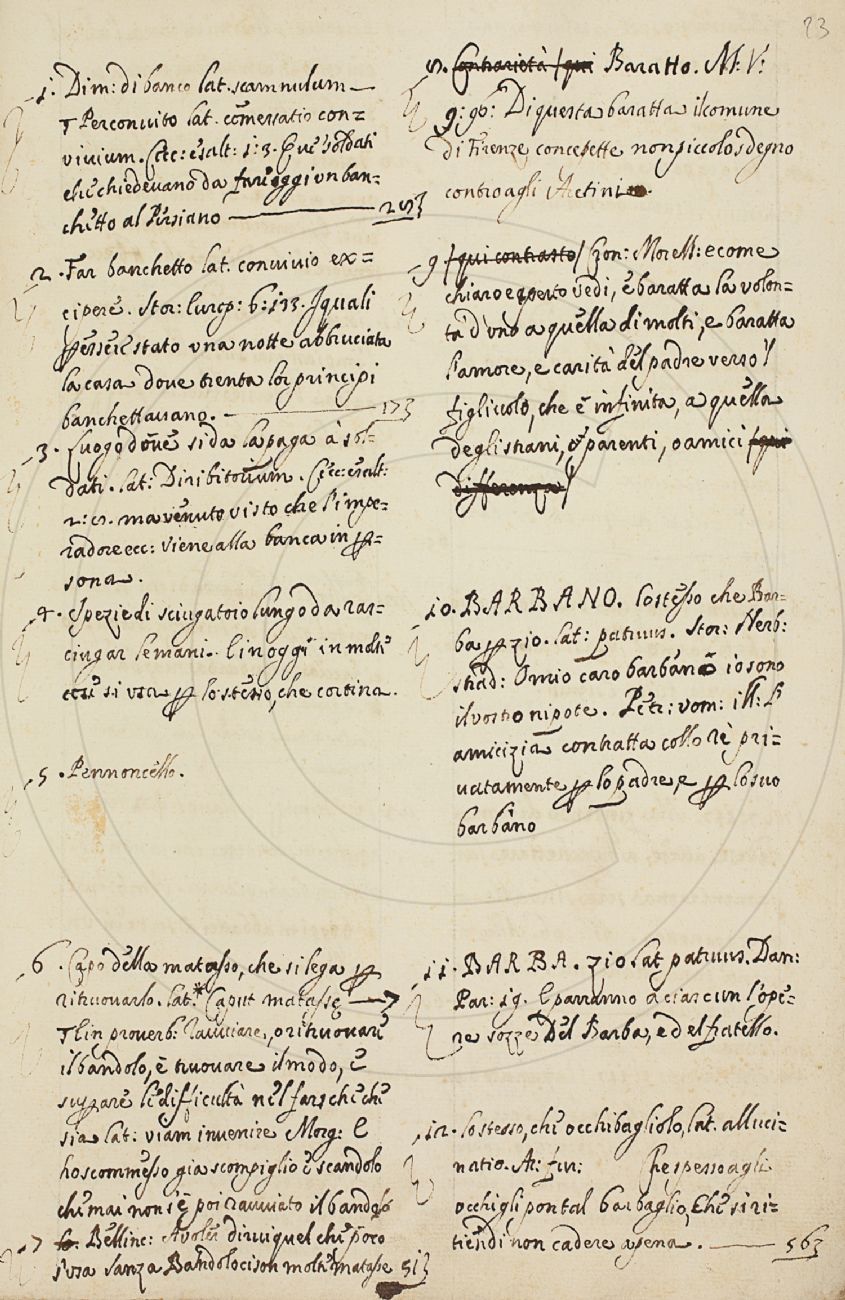 23
1. Dim: di banco lat. scamnulum —
T Per convito lat. comessatio con=
vivium. Cecc: esalt: 1: 3. Que' soldati
che chiedevano da fare oggi un ban=
chetto al Persiano —
2. Far banchetto lat. convivio ex=
cipere. Stor: Europ: 6: 133. I quali
essere stato una notte abbruciata
la casa dove trenta lor principi
banchettavano. — 173
3. Luogo dove si da la paga a sol=
dati. lat: Diribitorium. Cecc: esalt:
2: 5. ma venuto visto che l'impe=
radore ecc: viene alla banca in p=
sona.
4. Spezie di sciugatoio lungo da ras=
ciugar le mani. E in oggi in molti
si usa p lo stesso, che cortina.
5. Pennoncello.
6. Capo della matassa, che si lega p
ritruovarlo. lat.* Caput matassę —
T E in proverb: Ravviare, o ritruovare
il bandolo, è truovare il modo, e
superare le difficultà nel far, che che
sia lat: viam invenire Morg: E
ho scommesso gia scompiglio e scandolo
che mai non s'è poi ravviato il bandolo
7 Bellinc: A voler dirvi quel che poco
s'usa Sanza Bandolo ci son molte matasse 513
8. Contrarietà /qui Baratto. M: V:
9: 96: Di questa baratta il comune
di Firenze concepette non piccolo sdegno
contro agli Aretini.
9 /qui contrasto/ Cron: Morell: e come
chiaro e aperto vedi, è baratta la volon=
tà d'uno a quella di molti, e baratta
l'amore, e carità del padre verso 'l
figliuolo, che è infinita, a quella
degli strani, o parenti, o amici /qui
differenza/
10. BARBANO. lo stesso che Bar=
ba p zio. lat: patruus. Stor: Nerb:
strad: O mio caro barbano io sono
il vostro nipote. Petr: uom: ill: P
amicizia contratta collo re pri=
vatamente p lo padre, e p lo suo
barbano
11. BARBA. zio. lat patruus. Dan:
Par: 19. E parranno a ciascun l'ope=
re sozze Del Barba, e del fratello.
12. lo stesso, che occhibagliolo, lat. alluci=
natio. At: fur: Che spesso agli
occhi gli pon tal barbaglio, Che si ri=
tien di non cadere a pena. — 563